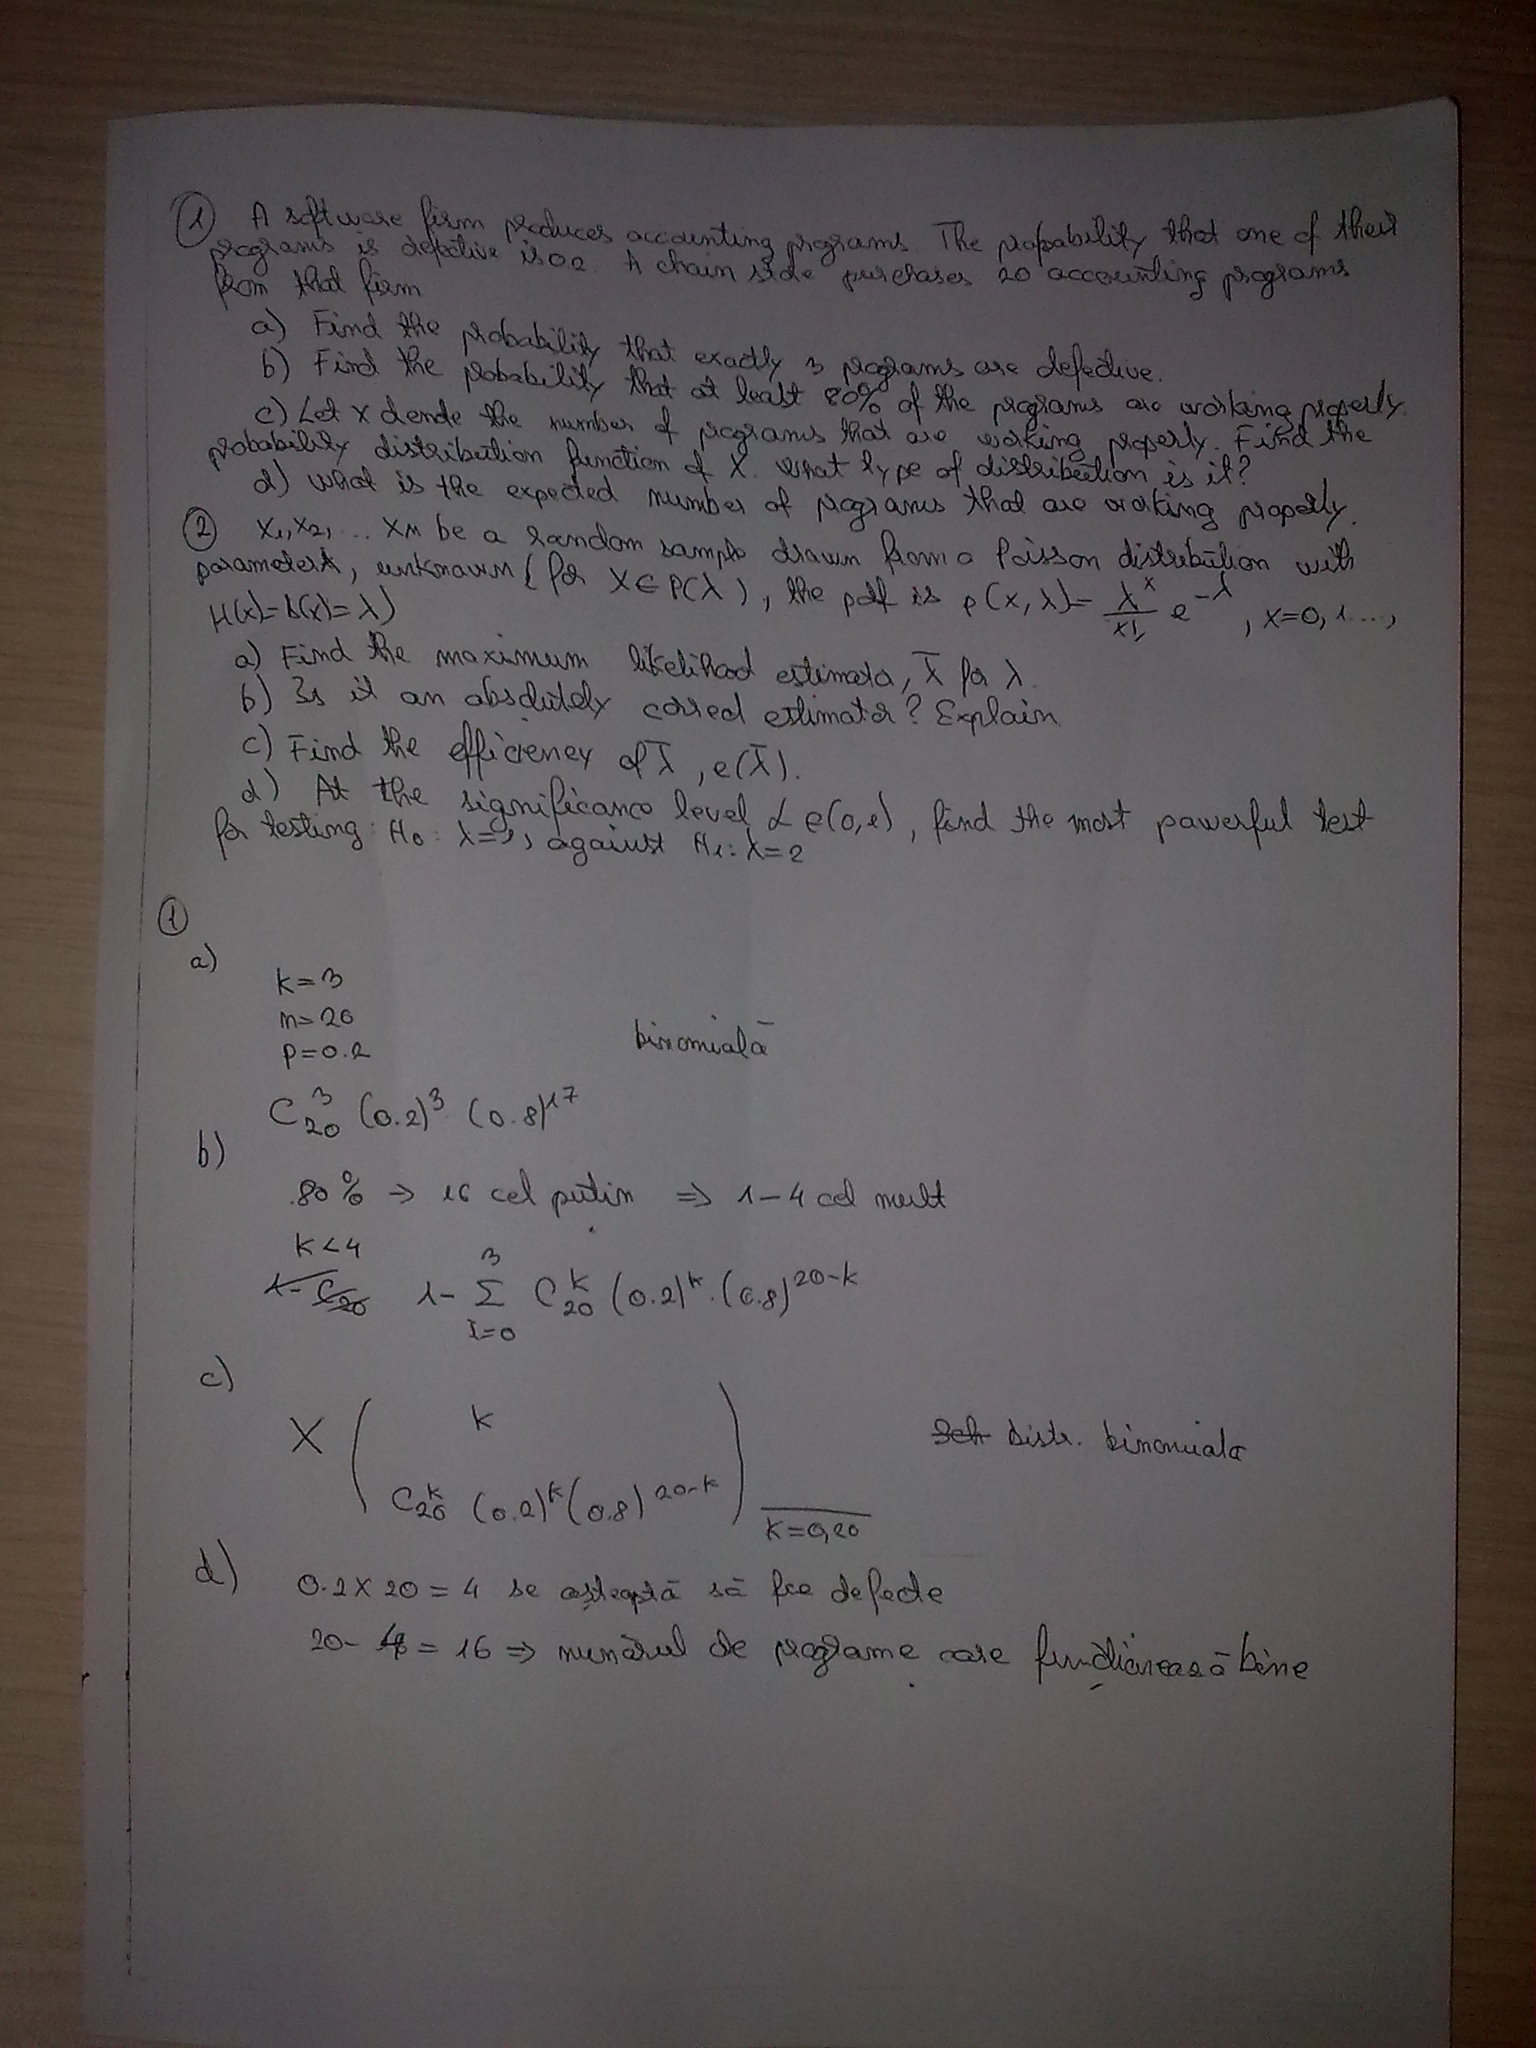 ① A software firm produces accounting programs The probability that one of their
programs is defective is 0.2. A chain store purchases 20 accounting programs
from that firm
a) Find the probability that exactly 3 programs are defective.
b) Find the probability that at least 80% of the programs are working properly.
c) Let X denote the number of programs that are working properly. Find the
probability distribution function of X. What type of distribution is it?
d) What is the expected number of programs that are working properly.
② X1, X2, ... Xn be a random sample drawn from a Poisson distribution with
parameter λ, unknown (for X ∈ P(λ), the pdf is p(x, λ) = λ^x/x! e^-λ, x=0, 1...,
M(x)=D(x)= λ)
a) Find the maximum likelihood estimator, λ̄ for λ.
b) Is it an absolutely correct estimator? Explain
c) Find the efficiency of λ̄, e(λ̄).
d) At the significance level α ∈ (0,1), find the most powerful test
for testing: H0: λ= , against H1: λ=2
①
a)
k=3
n=20
p=0.2 binomială
C_20^3 (0.2)^3 (0.8)^17
b)
80% → 16 cel putin ⇒ 1-4 cel mult
k<4
1- C20 1- Σ_{i=0}^{3} C_20^k (0.2)^k · (0.8)^20-k
c)
X ( k
C_20^k (0.2)^k (0.8)^20-k ) k=0,20 distr. binomiala
d) 0.2 x 20 = 4 se așteaptă să fie defecte
20- 4 = 16 ⇒ numărul de programe care funcționează bine